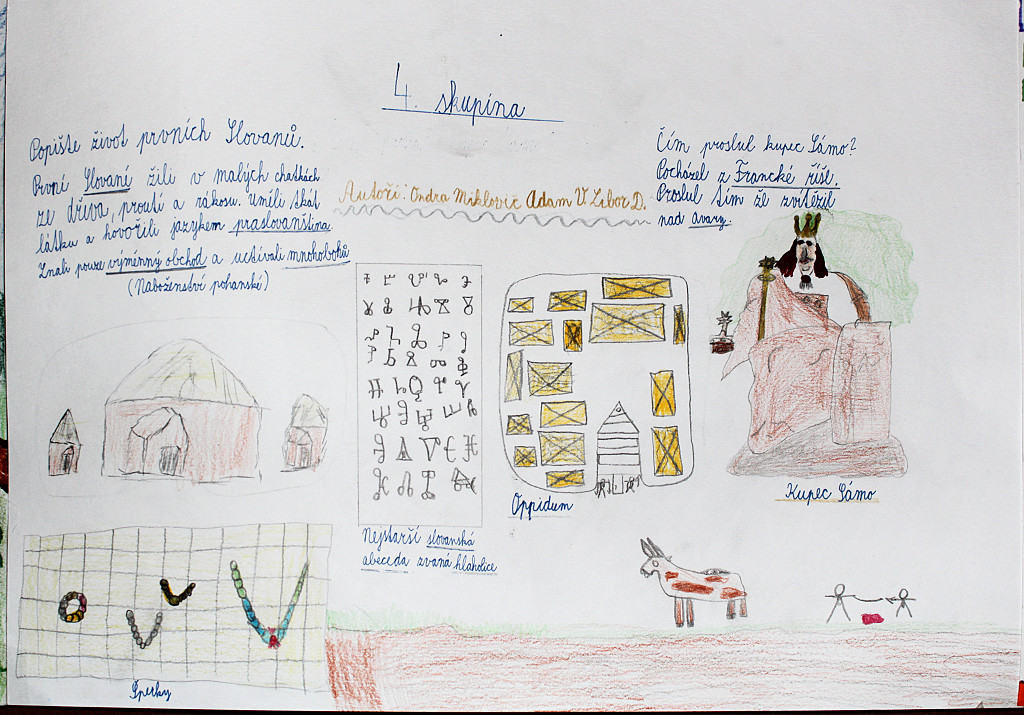 4. skupina
Popište život prvních Slovanů.
První Slované žili v malých chatkách
ze dřeva, proutí a rákosu. Uměli tkát
látku a hovořili jazykem praslovanština.
Znali pouze výměnný obchod a uctívali mnohobohů
(Naboženství pohanské)
Autoři: Ondra Miklovic Adam V. Libor D.
Čím proslul kupec Sámo?
Pocházel z Francké říší.
Proslul tím že zvítězil
nad avary.
Nejstarší slovanská
abeceda zvaná hlaholice
Oppidum
Kupec Sámo
Šperky